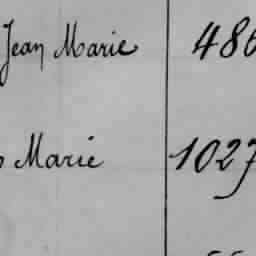 Jean Marie 486
Marie 1027